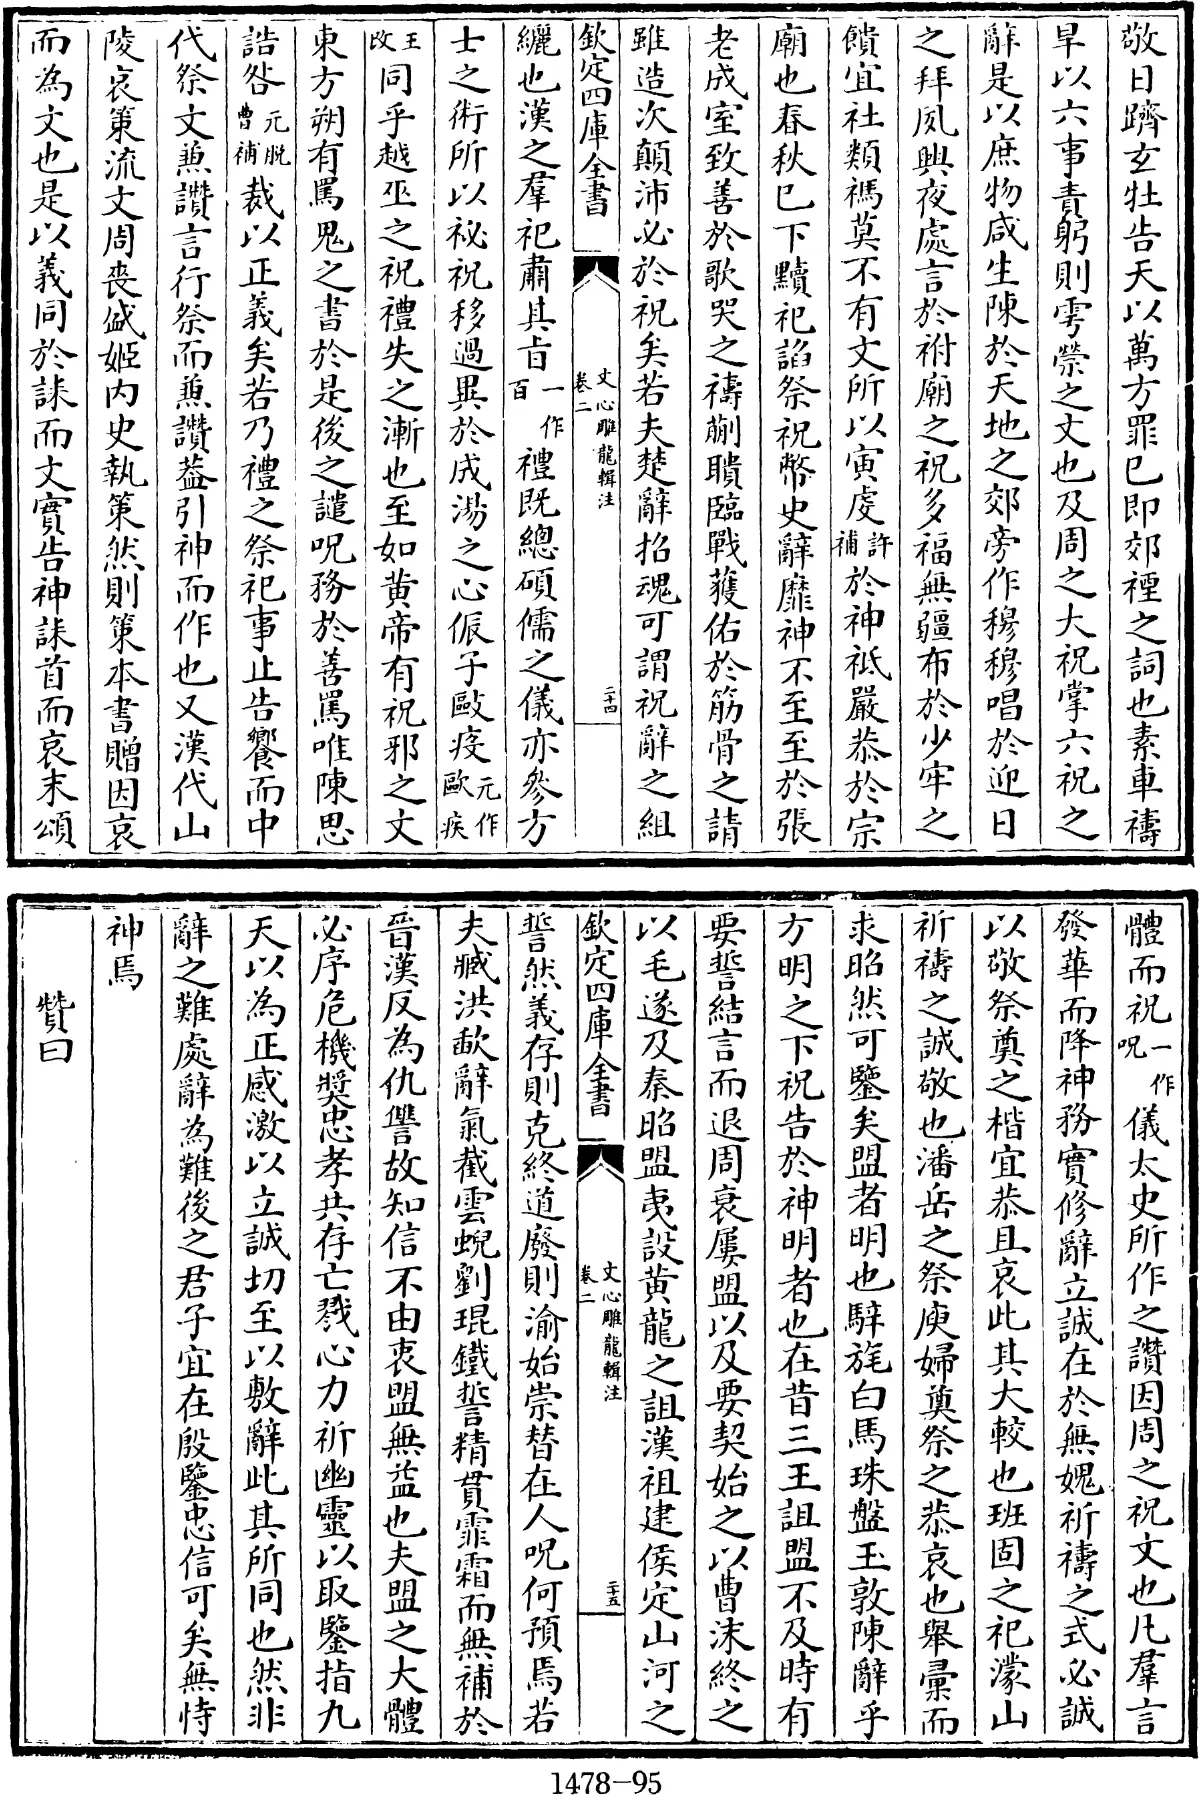 敬日躋玄牡告天以萬方罪已即郊禋之詞也素車禱
旱以六事責躬則雩禜之文也及周之大祝掌六祝之
辭是以庶物咸生陳於天地之郊旁作穆穆唱於迎日
之拜夙興夜處言於祔廟之祝多福無疆布於少牢之
饋宜社類禡莫不有文所以寅䖍許補於神祗嚴恭於宗
廟也春秋已下黷祀諂祭祝幣史辭靡神不至至於張
老成室致善於歌哭之禱蒯聵臨戰獲佑於筋骨之請
雖造次顛沛必於祝矣若夫楚辭招魂可謂祝辭之組
欽定四庫全書 文心雕龍輯注 卷二 二十四
纚也漢之羣祀肅其旨一作百禮既總碩儒之儀亦參方
士之術所以祕祝移過異於成湯之心侲子敺疫元作歐疾
王改同乎越巫之祝禮失之漸也至如黄帝有祝邪之文
東方朔有罵鬼之書於是後之譴呪務於善罵唯陳思
誥咎元脱曹補裁以正義矣若乃禮之祭祀事止告饗而中
代祭文兼讚言行祭而兼讚葢引神而作也又漢代山
陵哀策流文周喪盛姬内史執策然則策本書贈因哀
而為文也是以義同於誄而文實告神誄首而哀末頌
體而祝一作呪儀太史所作之讚因周之祝文也凡羣言
發華而降神務實修辭立誠在於無媿祈禱之式必誠
以敬祭奠之楷宜恭且哀此其大較也班固之祀濛山
祈禱之誠敬也潘岳之祭庾婦奠祭之恭哀也舉彚而
求昭然可鑒矣盟者明也騂旄白馬珠盤玉敦陳辭乎
方明之下祝告於神明者也在昔三王詛盟不及時有
要誓結言而退周衰屢盟以及要契始之以曹沫終之
以毛遂及秦昭盟夷設黄龍之詛漢祖建侯定山河之
欽定四庫全書 文心雕龍輯注 卷二 二十五
誓然義存則克終道廢則渝始崇替在人呪何預焉若
夫臧洪歃辭氣截雲蜺劉琨鐵誓精貫霏霜而無補於
晉漢反為仇讐故知信不由衷盟無益也夫盟之大體
必序危機奬忠孝共存亡戮心力祈幽靈以取鑒指九
天以為正感激以立誠切至以敷辭此其所同也然非
辭之難處辭為難後之君子宜在殷鑒忠信可矣無恃
神焉
贊曰
1478-95